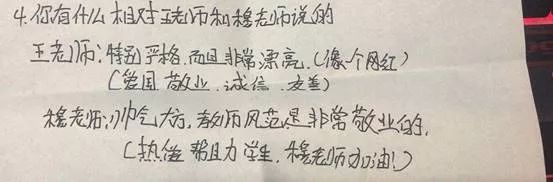 4.你有什么相对王老师和穆老师说的
王老师:特别严格,而且非常漂亮.(像个网红)
(爱国 敬业 .诚信 .友善)
穆老师:帅气大方,教师风范是非常敬业的,
(热爱 帮助学生,穆老师加油!)